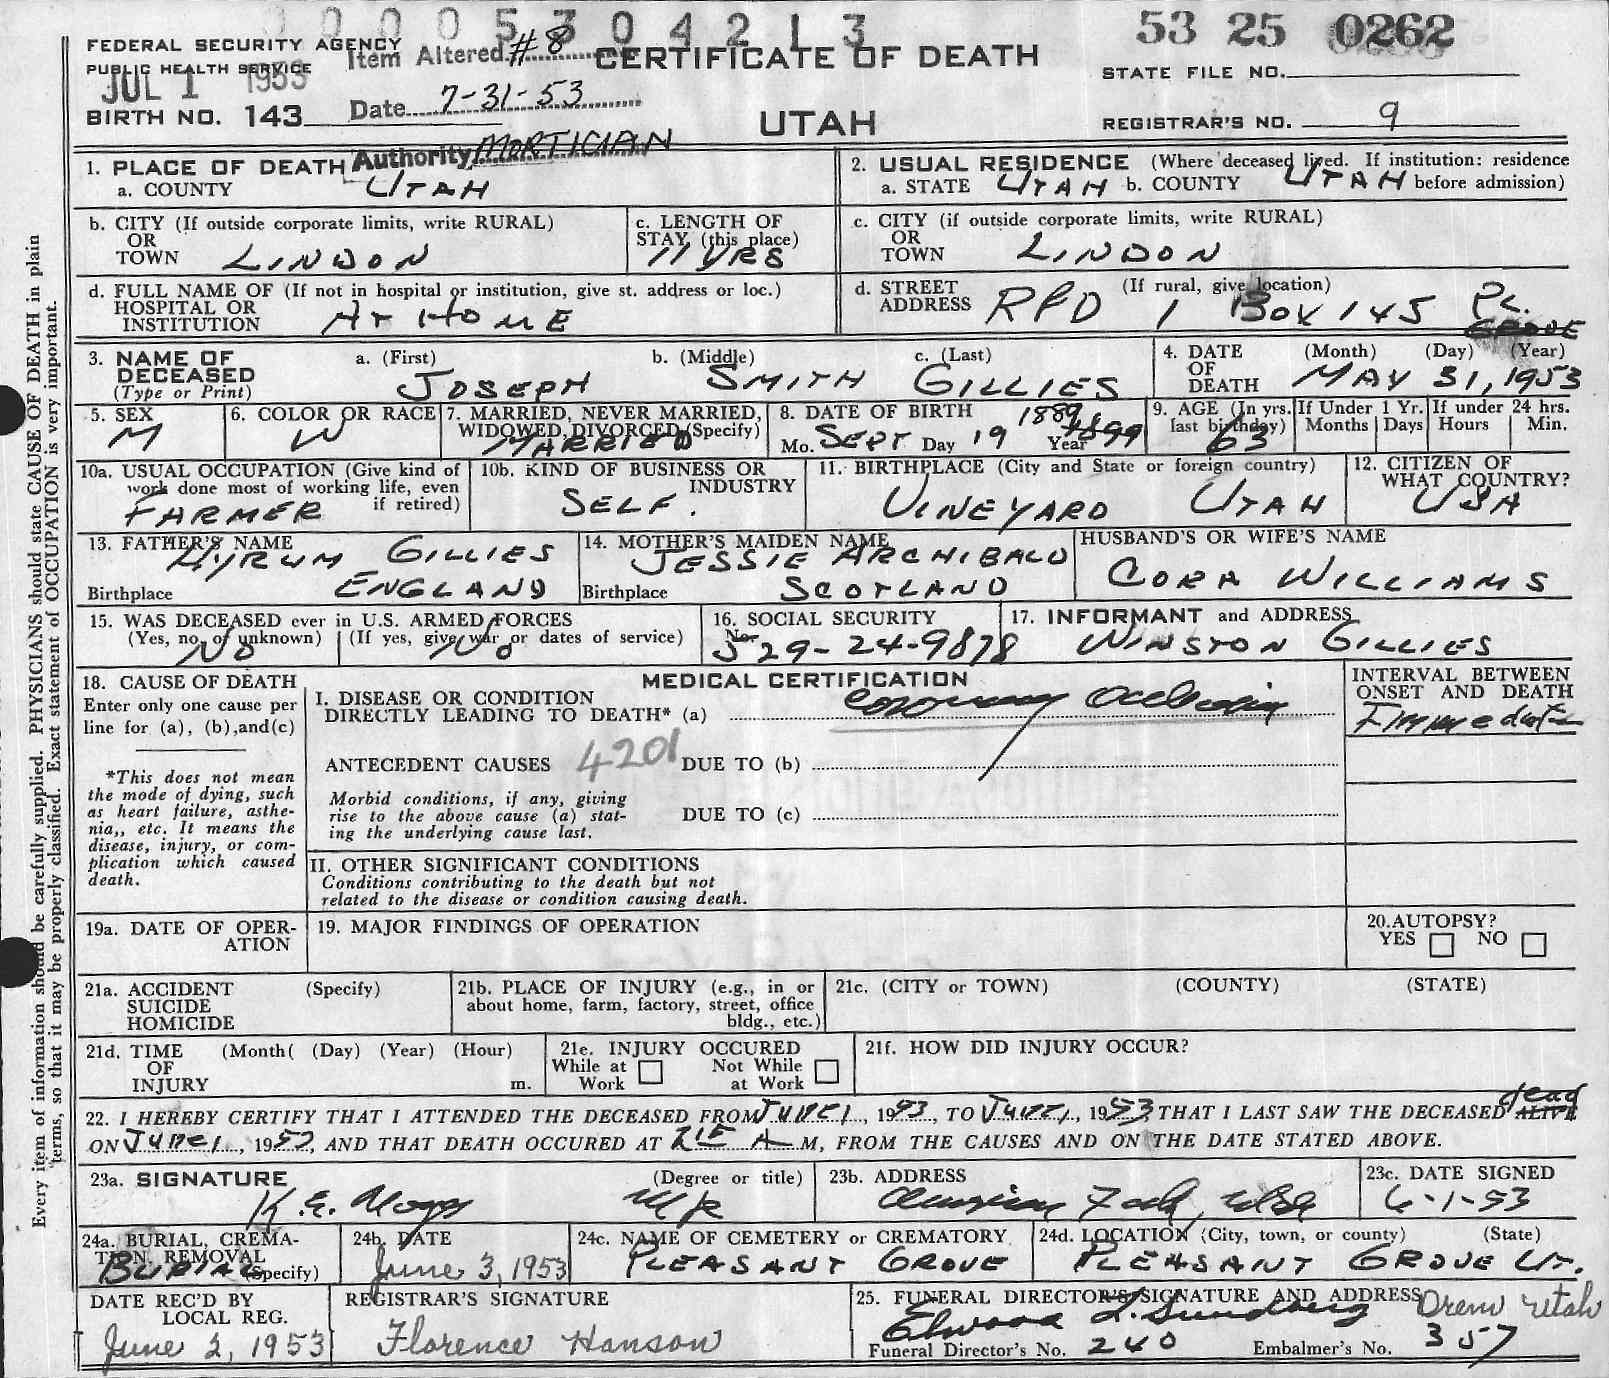 00005304213
53 25 0262
FEDERAL SECURITY AGENCY
PUBLIC HEALTH SERVICE
JUL 1 1953
Item Altered #8
CERTIFICATE OF DEATH
STATE FILE NO.
BIRTH NO. 143
Date 7-31-53
UTAH
REGISTRAR'S NO. 9
Authority MORTICIAN
1. PLACE OF DEATH
a. COUNTY UTAH
2. USUAL RESIDENCE (Where deceased lived. If institution: residence before admission)
a. STATE UTAH b. COUNTY UTAH
b. CITY (If outside corporate limits, write RURAL)
OR
TOWN LINDON
c. LENGTH OF
STAY (this place)
11 YRS
c. CITY (if outside corporate limits, write RURAL)
OR
TOWN LINDON
d. FULL NAME OF (If not in hospital or institution, give st. address or loc.)
HOSPITAL OR
INSTITUTION AT HOME
d. STREET (If rural, give location)
ADDRESS RFD 1 BOX 145 PL. GROVE
3. NAME OF DECEASED
(Type or Print)
a. (First) b. (Middle) c. (Last)
JOSEPH SMITH GILLIES
4. DATE OF DEATH
(Month) (Day) (Year)
MAY 31, 1953
5. SEX
M
6. COLOR OR RACE
W
7. MARRIED, NEVER MARRIED,
WIDOWED, DIVORCED (Specify)
MARRIED
8. DATE OF BIRTH 1889
Mo. SEPT Day 19 Year 1899
9. AGE (In yrs. last birthday)
63
If Under 1 Yr. Months Days
If under 24 hrs. Hours Min.
10a. USUAL OCCUPATION (Give kind of
work done most of working life, even
if retired)
FARMER
10b. KIND OF BUSINESS OR
INDUSTRY
SELF.
11. BIRTHPLACE (City and State or foreign country)
VINEYARD UTAH
12. CITIZEN OF
WHAT COUNTRY?
USA
13. FATHER'S NAME
HYRUM GILLIES
Birthplace ENGLAND
14. MOTHER'S MAIDEN NAME
JESSIE ARCHIBALD
Birthplace SCOTLAND
HUSBAND'S OR WIFE'S NAME
CORA WILLIAMS
15. WAS DECEASED ever in U.S. ARMED FORCES
(Yes, no, of unknown) (If yes, give war or dates of service)
NO NO
16. SOCIAL SECURITY
No.
529-24-9878
17. INFORMANT and ADDRESS
WINSTON GILLIES
18. CAUSE OF DEATH
Enter only one cause per
line for (a), (b),and(c)
*This does not mean
the mode of dying, such
as heart failure, asthe-
nia,, etc. It means the
disease, injury, or com-
plication which caused
death.
MEDICAL CERTIFICATION
I. DISEASE OR CONDITION
DIRECTLY LEADING TO DEATH* (a) coronary occlusion
INTERVAL BETWEEN
ONSET AND DEATH
Immediate
ANTECEDENT CAUSES 4201 DUE TO (b)
Morbid conditions, if any, giving
rise to the above cause (a) stat-
ing the underlying cause last.
DUE TO (c)
II. OTHER SIGNIFICANT CONDITIONS
Conditions contributing to the death but not
related to the disease or condition causing death.
19a. DATE OF OPER-
ATION
19. MAJOR FINDINGS OF OPERATION
20.AUTOPSY?
YES NO
21a. ACCIDENT (Specify)
SUICIDE
HOMICIDE
21b. PLACE OF INJURY (e.g., in or
about home, farm, factory, street, office
bldg., etc.)
21c. (CITY or TOWN) (COUNTY) (STATE)
21d. TIME (Month( (Day) (Year) (Hour)
OF
INJURY m.
21e. INJURY OCCURED
While at Work Not While at Work
21f. HOW DID INJURY OCCUR?
22. I HEREBY CERTIFY THAT I ATTENDED THE DECEASED FROM June 1, 1953, TO June 1, 1953, THAT I LAST SAW THE DECEASED ALIVE dead
ON June 1, 1953, AND THAT DEATH OCCURED AT A M, FROM THE CAUSES AND ON THE DATE STATED ABOVE.
23a. SIGNATURE (Degree or title)
K. E.
23b. ADDRESS
23c. DATE SIGNED
6-1-53
24a. BURIAL, CREMA-
TION, REMOVAL
(Specify)
BURIAL
24b. DATE
June 3, 1953
24c. NAME OF CEMETERY or CREMATORY
PLEASANT GROVE
24d. LOCATION (City, town, or county) (State)
PLEASANT GROVE UT.
DATE REC'D BY
LOCAL REG.
June 2, 1953
REGISTRAR'S SIGNATURE
Florence Hanson
25. FUNERAL DIRECTOR'S SIGNATURE AND ADDRESS
Elwood L. Sundberg Orem Utah
Funeral Director's No. 240 Embalmer's No. 357
Every item of information should be carefully supplied. PHYSICIANS should state CAUSE OF DEATH in plain
terms, so that it may be properly classified. Exact statement of OCCUPATION is very important.